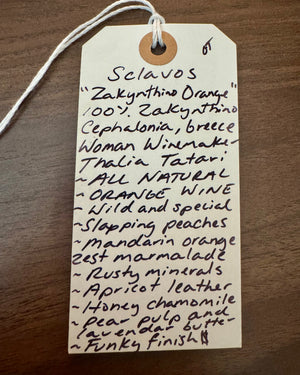 GT
Sclavos
"Zakynthino Orange"
100% Zakynthino
Cephalonia, Greece
Woman Winemaker
Thalia Tatari
~ALL NATURAL
~ORANGE WINE
~Wild and special
~Slapping peaches
~mandarin orange
zest marmalade
~Rusty minerals
~Apricot leather
~Honey chamomile
~pear pulp and
lavendar butter
~Funky finish